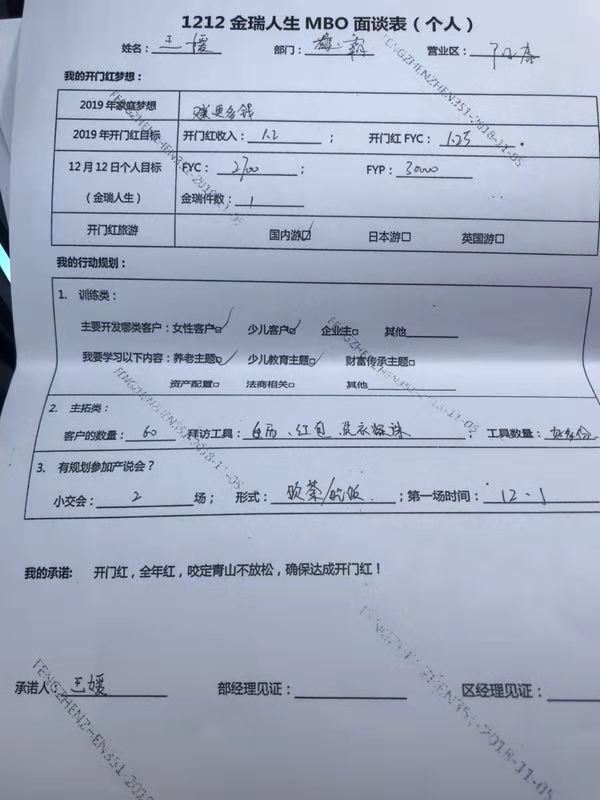 1212 金瑞人生 MBO 面谈表（个人）
姓名：王媛 部门： 营业区：
我的开门红梦想：
2019 年家庭梦想 赚更多钱
2019 年开门红目标 开门红收入：1.2 ； 开门红 FYC：1.25
12 月 12 日个人目标 FYC：2700 ； FYP：30000
（金瑞人生） 金瑞件数：1
开门红旅游 国内游☑ 日本游□ 英国游□
我的行动规划：
1. 训练类：
主要开发哪类客户：女性客户☑ 少儿客户☑ 企业主□ 其他
我要学习以下内容：养老主题☑ 少儿教育主题☑ 财富传承主题□
资产配置□ 法商相关□ 其他
2. 主拓类：
客户的数量：60 拜访工具：台历、红包、洗衣凝珠 ；工具数量：
3. 有规划参加产说会？
小交会：2 场； 形式：饮茶/吃饭 ；第一场时间：12.1
我的承诺： 开门红，全年红，咬定青山不放松，确保达成开门红！
承诺人 王媛 部经理见证： 区经理见证：
FENGZHENZHEN351-2018-11-05
FENGZHENZHEN351-2018-11-05
FENGZHENZHEN351-2018-11-05
FENGZHENZHEN351-2018-11-05
FENGZHENZHEN351-201
FENGZHENZHEN351-2018-11-05